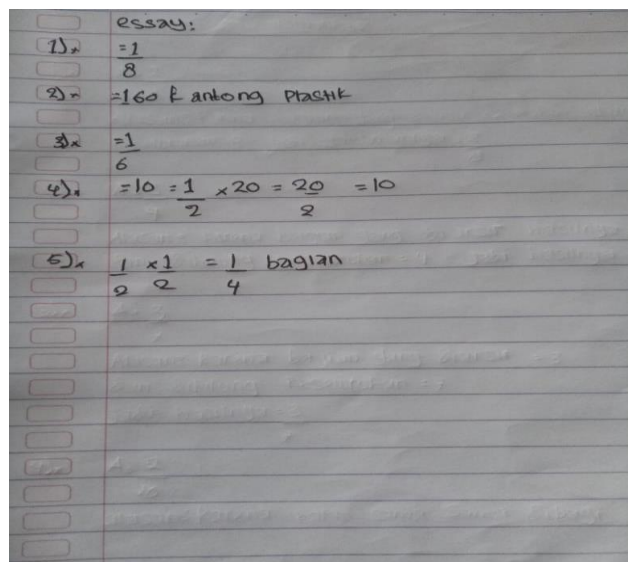 essay:
1) = 1/8
2) = 160 kantong Plastik
3) = 1/6
4) = 10 = 1/2 x 20 = 20/2 = 10
5) 1/2 x 1/2 = 1/4 bagian